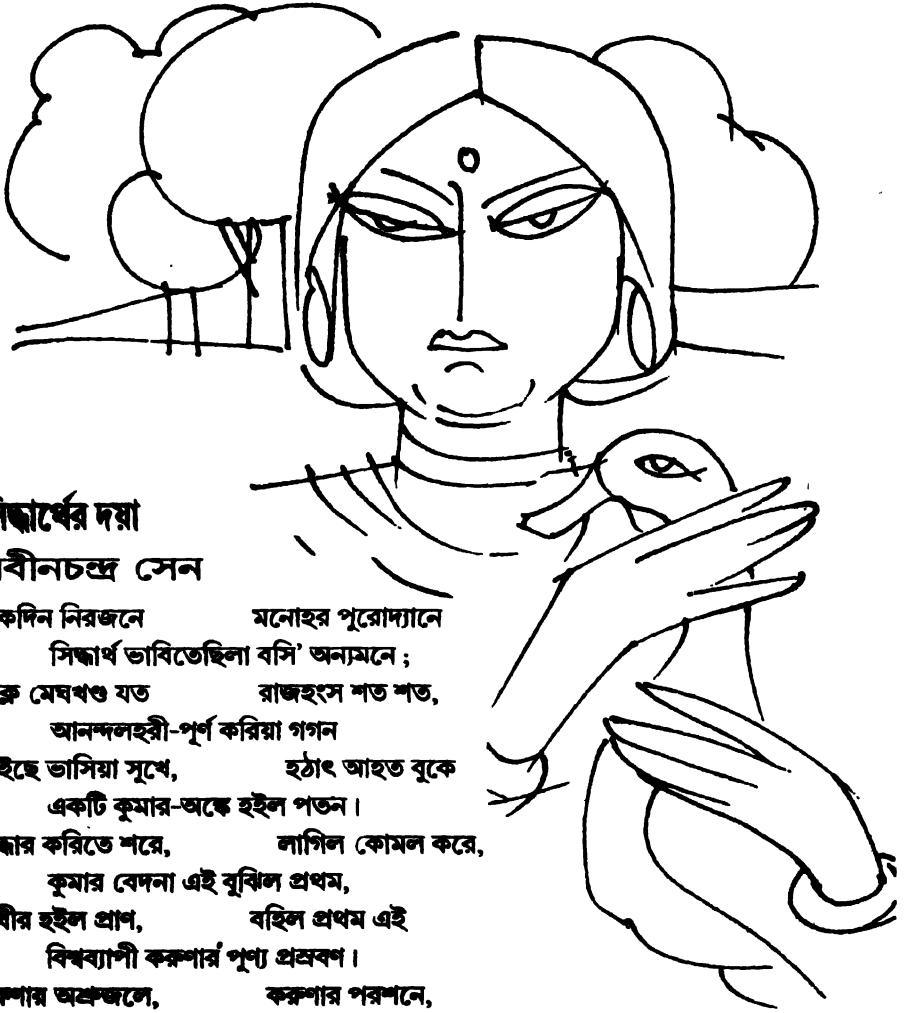 সিদ্ধার্থের দয়া
নবীনচন্দ্র সেন
একদিন নিরজনে মনোহর পুরোদ্যানে
সিদ্ধার্থ ভাবিতেছিলা বসি’ অন্যমনে;
মেঘখণ্ড যত রাজহংস শত শত,
আনন্দলহরী-পূর্ণ করিয়া গগন
ভাসিয়া সুখে, হঠাৎ আহত বুকে
একটি কুমার-অঙ্কে হইল পতন।
করিতে শরে, লাগিল কোমল করে,
কুমার বেদনা এই বুঝিল প্রথম,
হইল প্রাণ, বহিল প্রথম এই
বিশ্বব্যাপী করুণার পুণ্য প্রস্রবণ।
অশ্রুজলে, করুণার পরশনে,